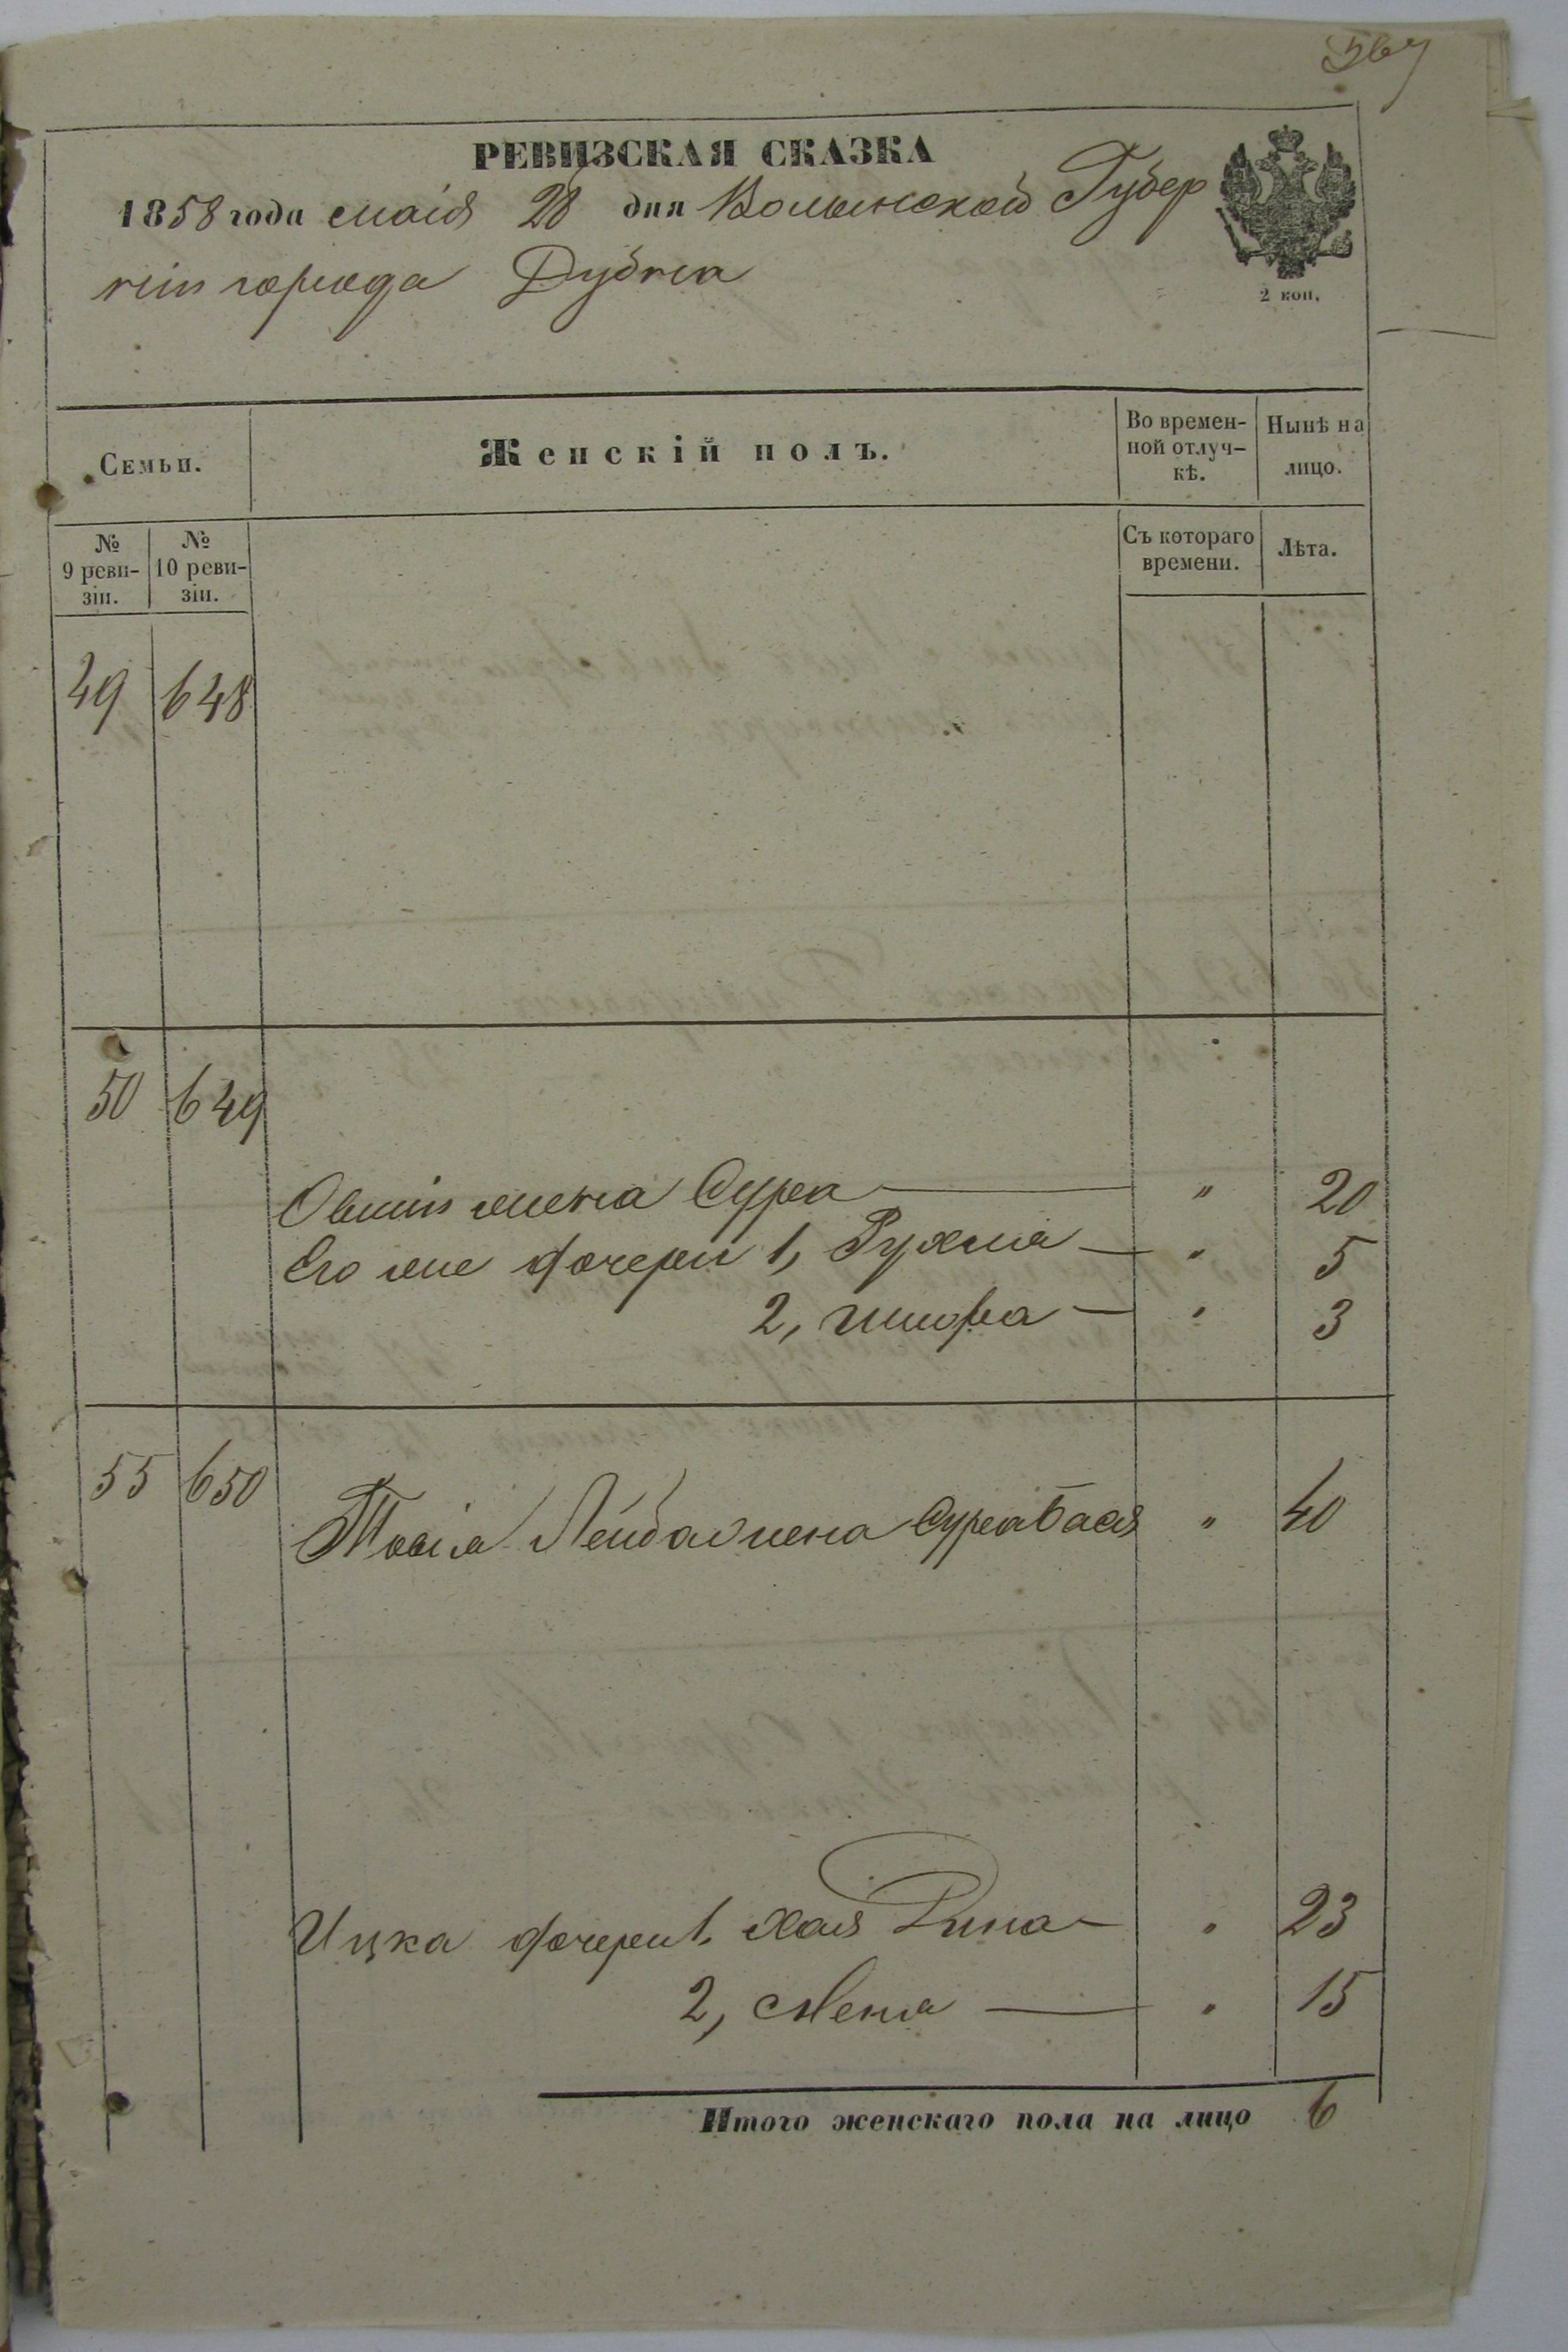 567
РЕВИЗСКАЯ СКАЗКА
1858 года маія 28 дня Волынской Губер
ніи города Дубна
2 коп.
Семьи.
Женскій полъ.
Во времен-
ной отлуч-
кѣ.
Нынѣ на
лицо.
№
9 реви-
зіи.
№
10 реви-
зіи.
Съ котораго
времени.
Лѣта.
49 648
50 649
жена Сура " 20
Его же дочери 1, Рухля " 5
2, " 3
55 650
Лейбы жена Сура Бася " 40
Ицка дочери 1. Хая " 23
2, " 15
Итого женскаго пола на лицо 6